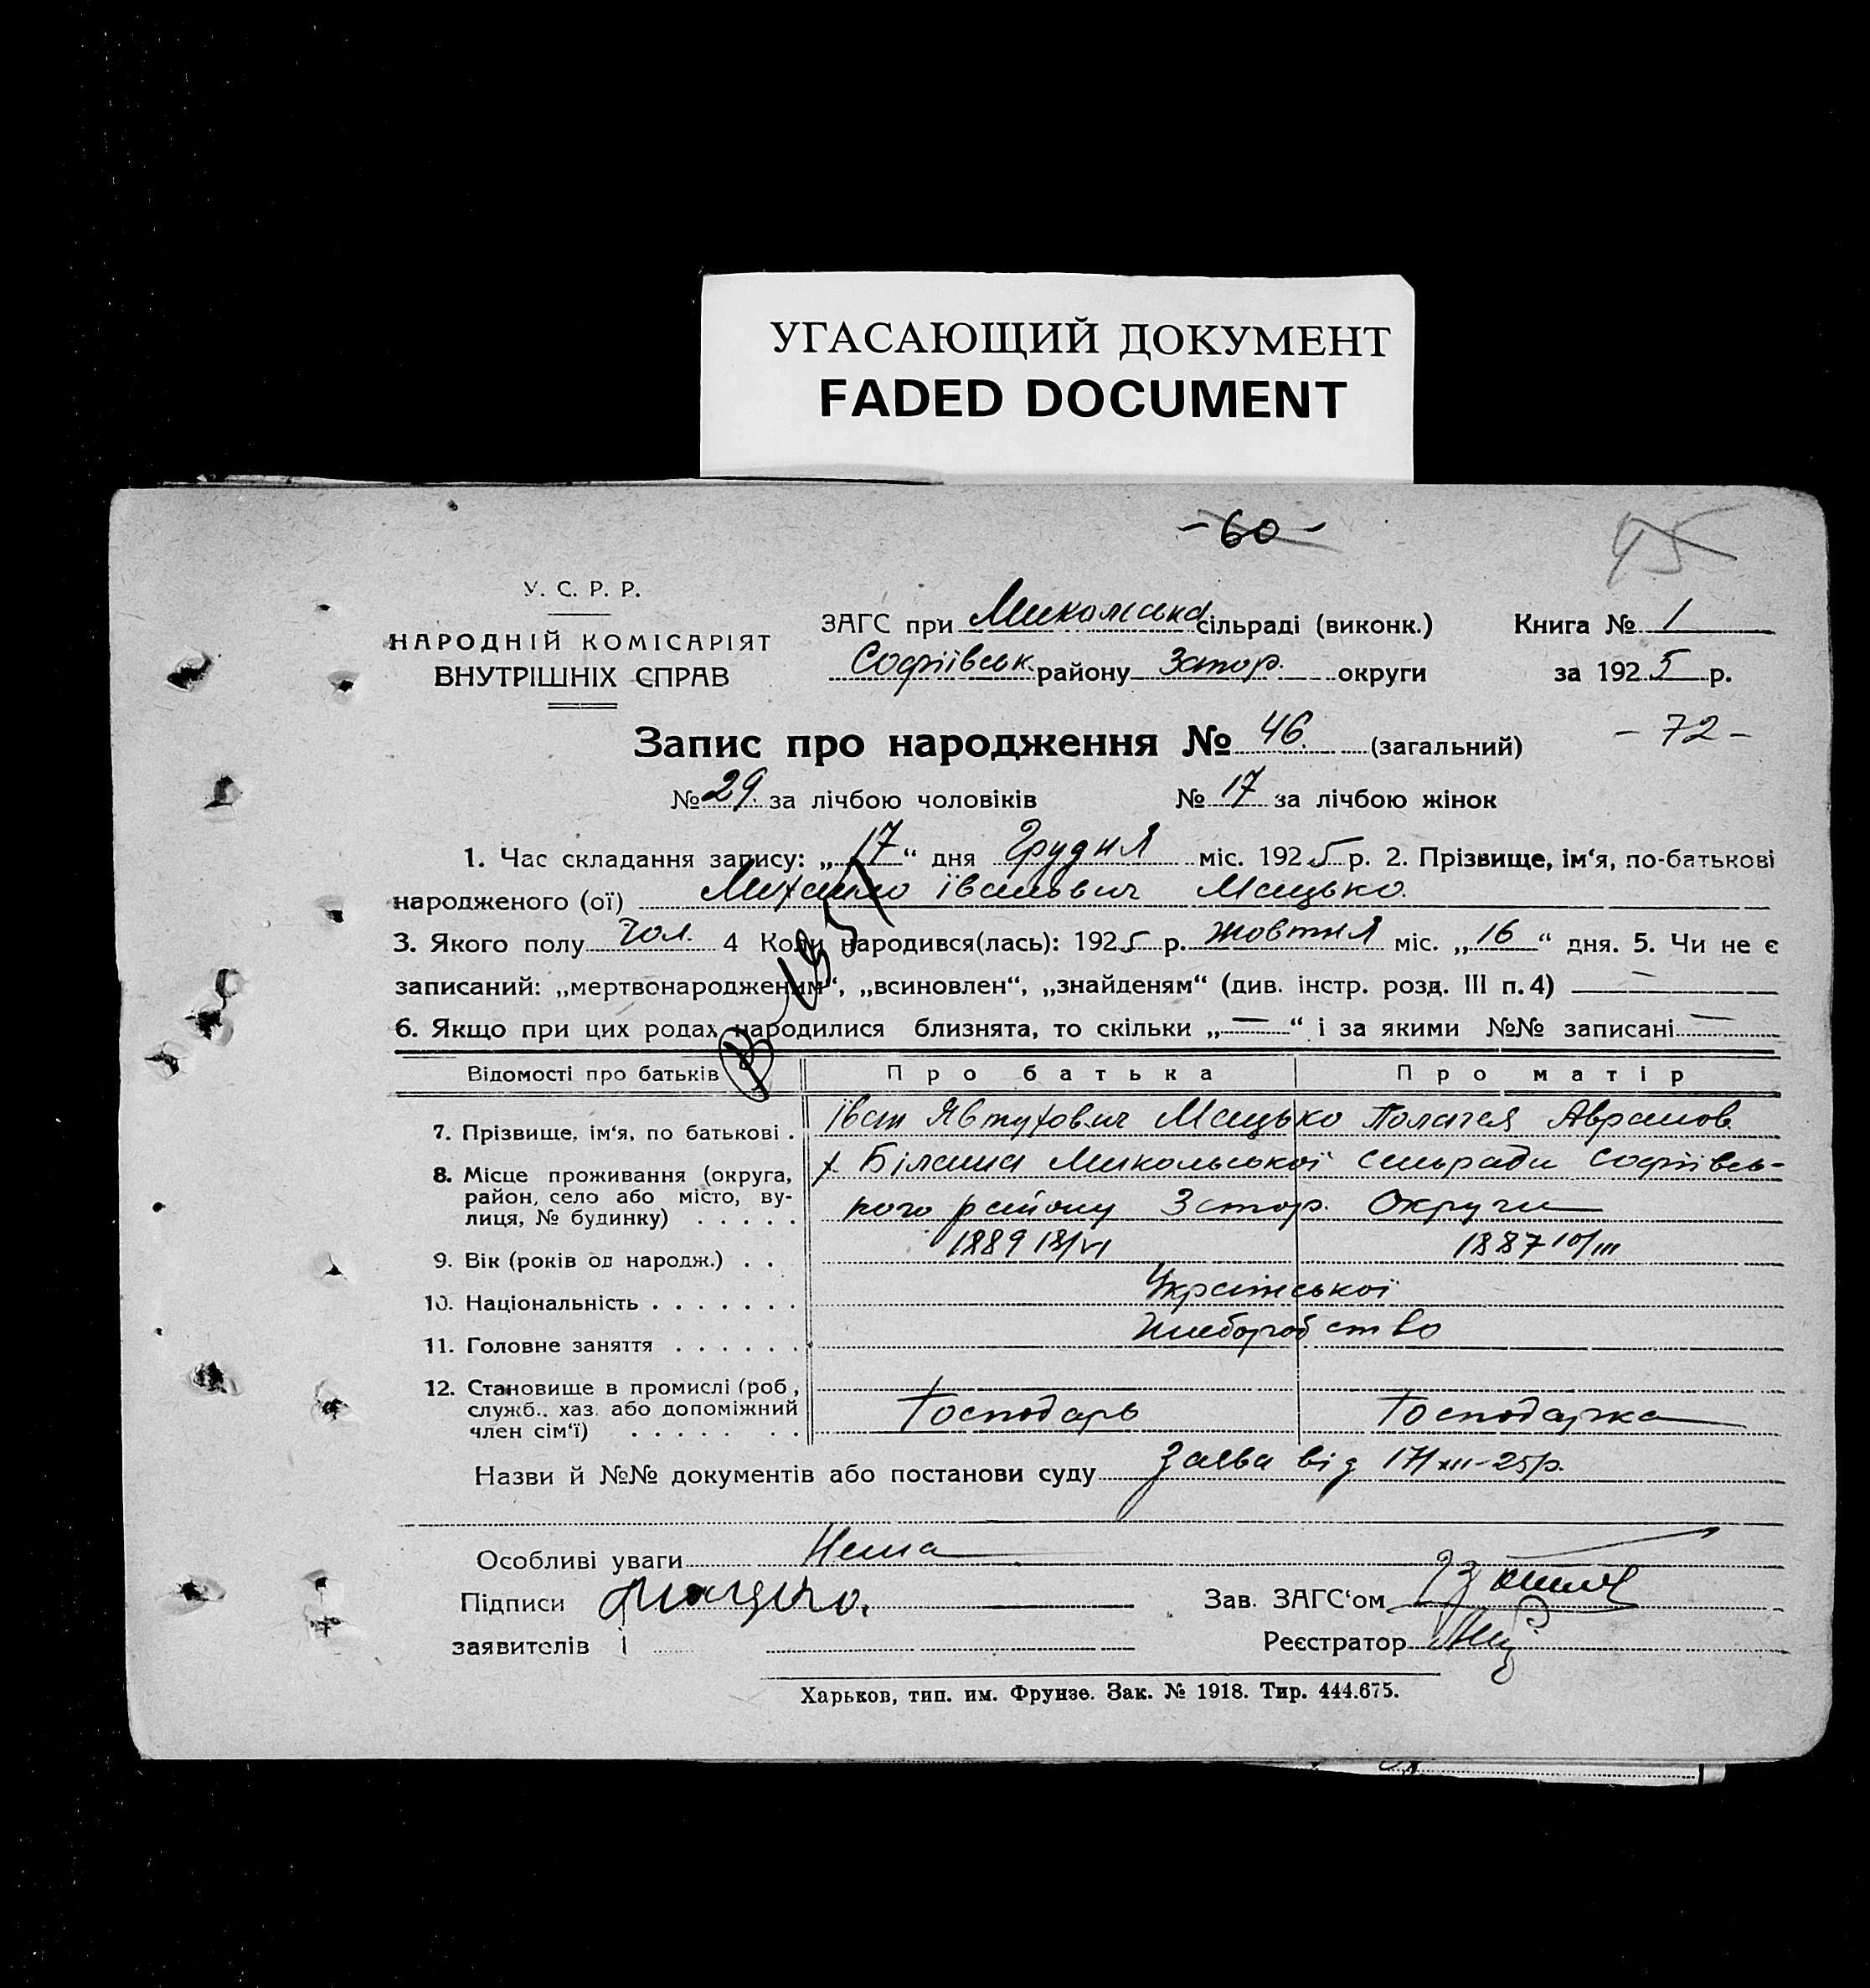 УГАСАЮЩИЙ ДОКУМЕНТ
FADED DOCUMENT
- 60 -
45
У. С. Р. Р.
НАРОДНІЙ КОМІСАРІЯТ
ВНУТРІШНІХ СПРАВ
ЗАГС при Микольська сільраді (виконк.) Книга № 1
Софіївськ. району Запор. округи за 1925 р.
Запис про народження № 46. (загальний) - 72 -
№ 29. за лічбою чоловіків № 17 за лічбою жінок
1. Час складання запису: „17“ дня Грудня міс. 1925 р. 2. Прізвище, ім‘я, по-батькові
народженого (ої) Михайло Іванович Мацько.
3. Якого полу Чол. 4 Коли народився(лась): 1925 р. жовтня міс. „16“ дня. 5. Чи не є
записаний: „мертвонародженим“, „всиновлен“, „знайденям“ (див. інстр. розд. III п. 4) —
6. Якщо при цих родах народилися близнята, то скільки „—“ і за якими №№ записані —
Відомості про батьків Про батька Про матір
7. Прізвище, ім‘я, по батькові . Іван Явтухович Мацько Полагея Аврамов.
8. Місце проживання (округа, район, село або місто, вулиця, № будинку) . . . . . х. Білаша Микольської сельради Софіївсь-
кого району Запор. Округи
9. Вік (років од народж.) . . 1889 18/VI 1887 10/III
10. Національність . . . . . . . Української
11. Головне заняття . . . . . . Хлеборобство
12. Становище в промислі (роб, служб., хаз. або допоміжний член сім‘ї) . . . . . . . Господарь Господарка
Назви й №№ документів або постанови суду Заява від 17/XII-25р.
Особливі уваги Нема
Підписи Мацько. Зав. ЗАГС‘ом
заявителів і Реєстратор
Харьков, тип. им. Фрунзе. Зак. № 1918. Тир. 444.675.